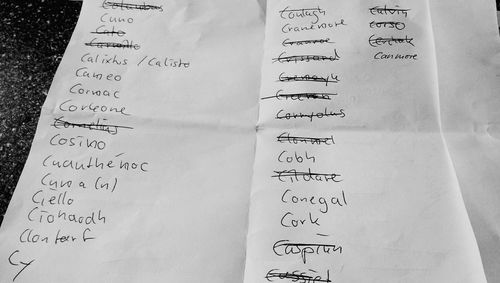 Columbus
Cuno
Cato
Camillo
Calixtus / Calisto
Cameo
Cormac
Corleone
Cornelius
Cosimo
Cuauthémoc
Cuma (n)
Ciello
Cionaodh
Clontarf
Cy
Coulagh
Cranemore
Crannoe
Crissard
Corrydus
Clonmel
Cobh
Cildare
Conegal
Cork
Caspian
Cassiel
Calvin
Corso
Canmore